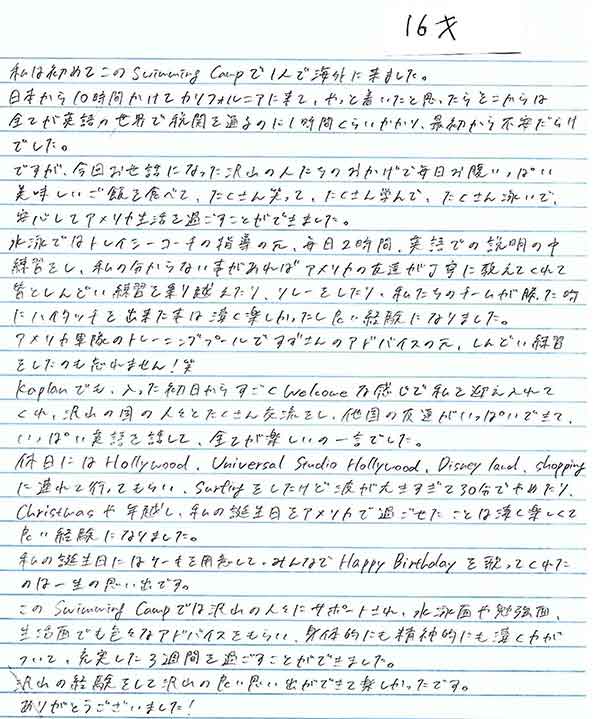 16才
私は初めてこのSwimming Campで1人で海外に来ました。
日本から10時間かけてカリフォルニアに来て、やっと着いたと思ったらそこからは
全てが英語の世界で税関を通るのに1時間くらいかかり、最初から不安だらけ
でした。
ですが、今回お世話になった沢山の人たちのおかげで毎日お腹いっぱい
美味しいご飯を食べて、たくさん笑って、たくさん学んで、たくさん泳いで、
安心してアメリカ生活を過ごすことができました。
水泳ではトレイシーコーチの指導の元、毎日2時間、英語での説明の中
練習をし、私の分からない事があればアメリカの友達が丁寧に教えてくれて
皆としんどい練習を乗り越えたり、リレーをしたり、私たちのチームが勝った時
にハイタッチを出来た事は凄く楽しかったし良い経験になりました。
アメリカ軍隊のトレーニングプールですずさんのアドバイスの元、しんどい練習
をしたのも忘れません!笑
Kaplanでも、入った初日からすごくWelcomeな感じで私を迎え入れて
くれ、沢山の国の人々とたくさん交流をし、他国の友達がいっぱいできて、
いっぱい英語を話して、全てが楽しいの一言でした。
休日にはHollywood、Universal Studio Hollywood、Disney land、shopping
に連れて行ってもらい、Surfingをしたけど波が大きすぎて30分でやめたり、
Christmasや年越し、私の誕生日をアメリカで過ごせたことは凄く楽しくて
良い経験になりました。
私の誕生日にはケーキを用意して、みんなでHappy Birthdayを歌ってくれた
のは一生の思い出です。
このSwimming Campでは沢山の人々にサポートされ、水泳面や勉強面、
生活面でも色々なアドバイスをもらい、身体的にも精神的にも凄く力が
ついて、充実した3週間を過ごすことができました。
沢山の経験をして沢山の良い思い出ができて楽しかったです。
ありがとうございました!